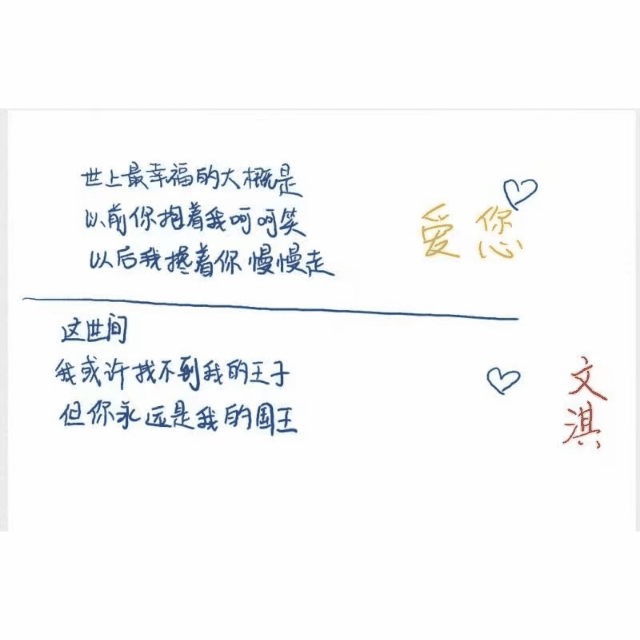 世上最幸福的大概是
以前你抱着我呵呵笑
以后我搀着你慢慢走
爱您
这世间
我或许找不到我的王子
但你永远是我的国王
文淇